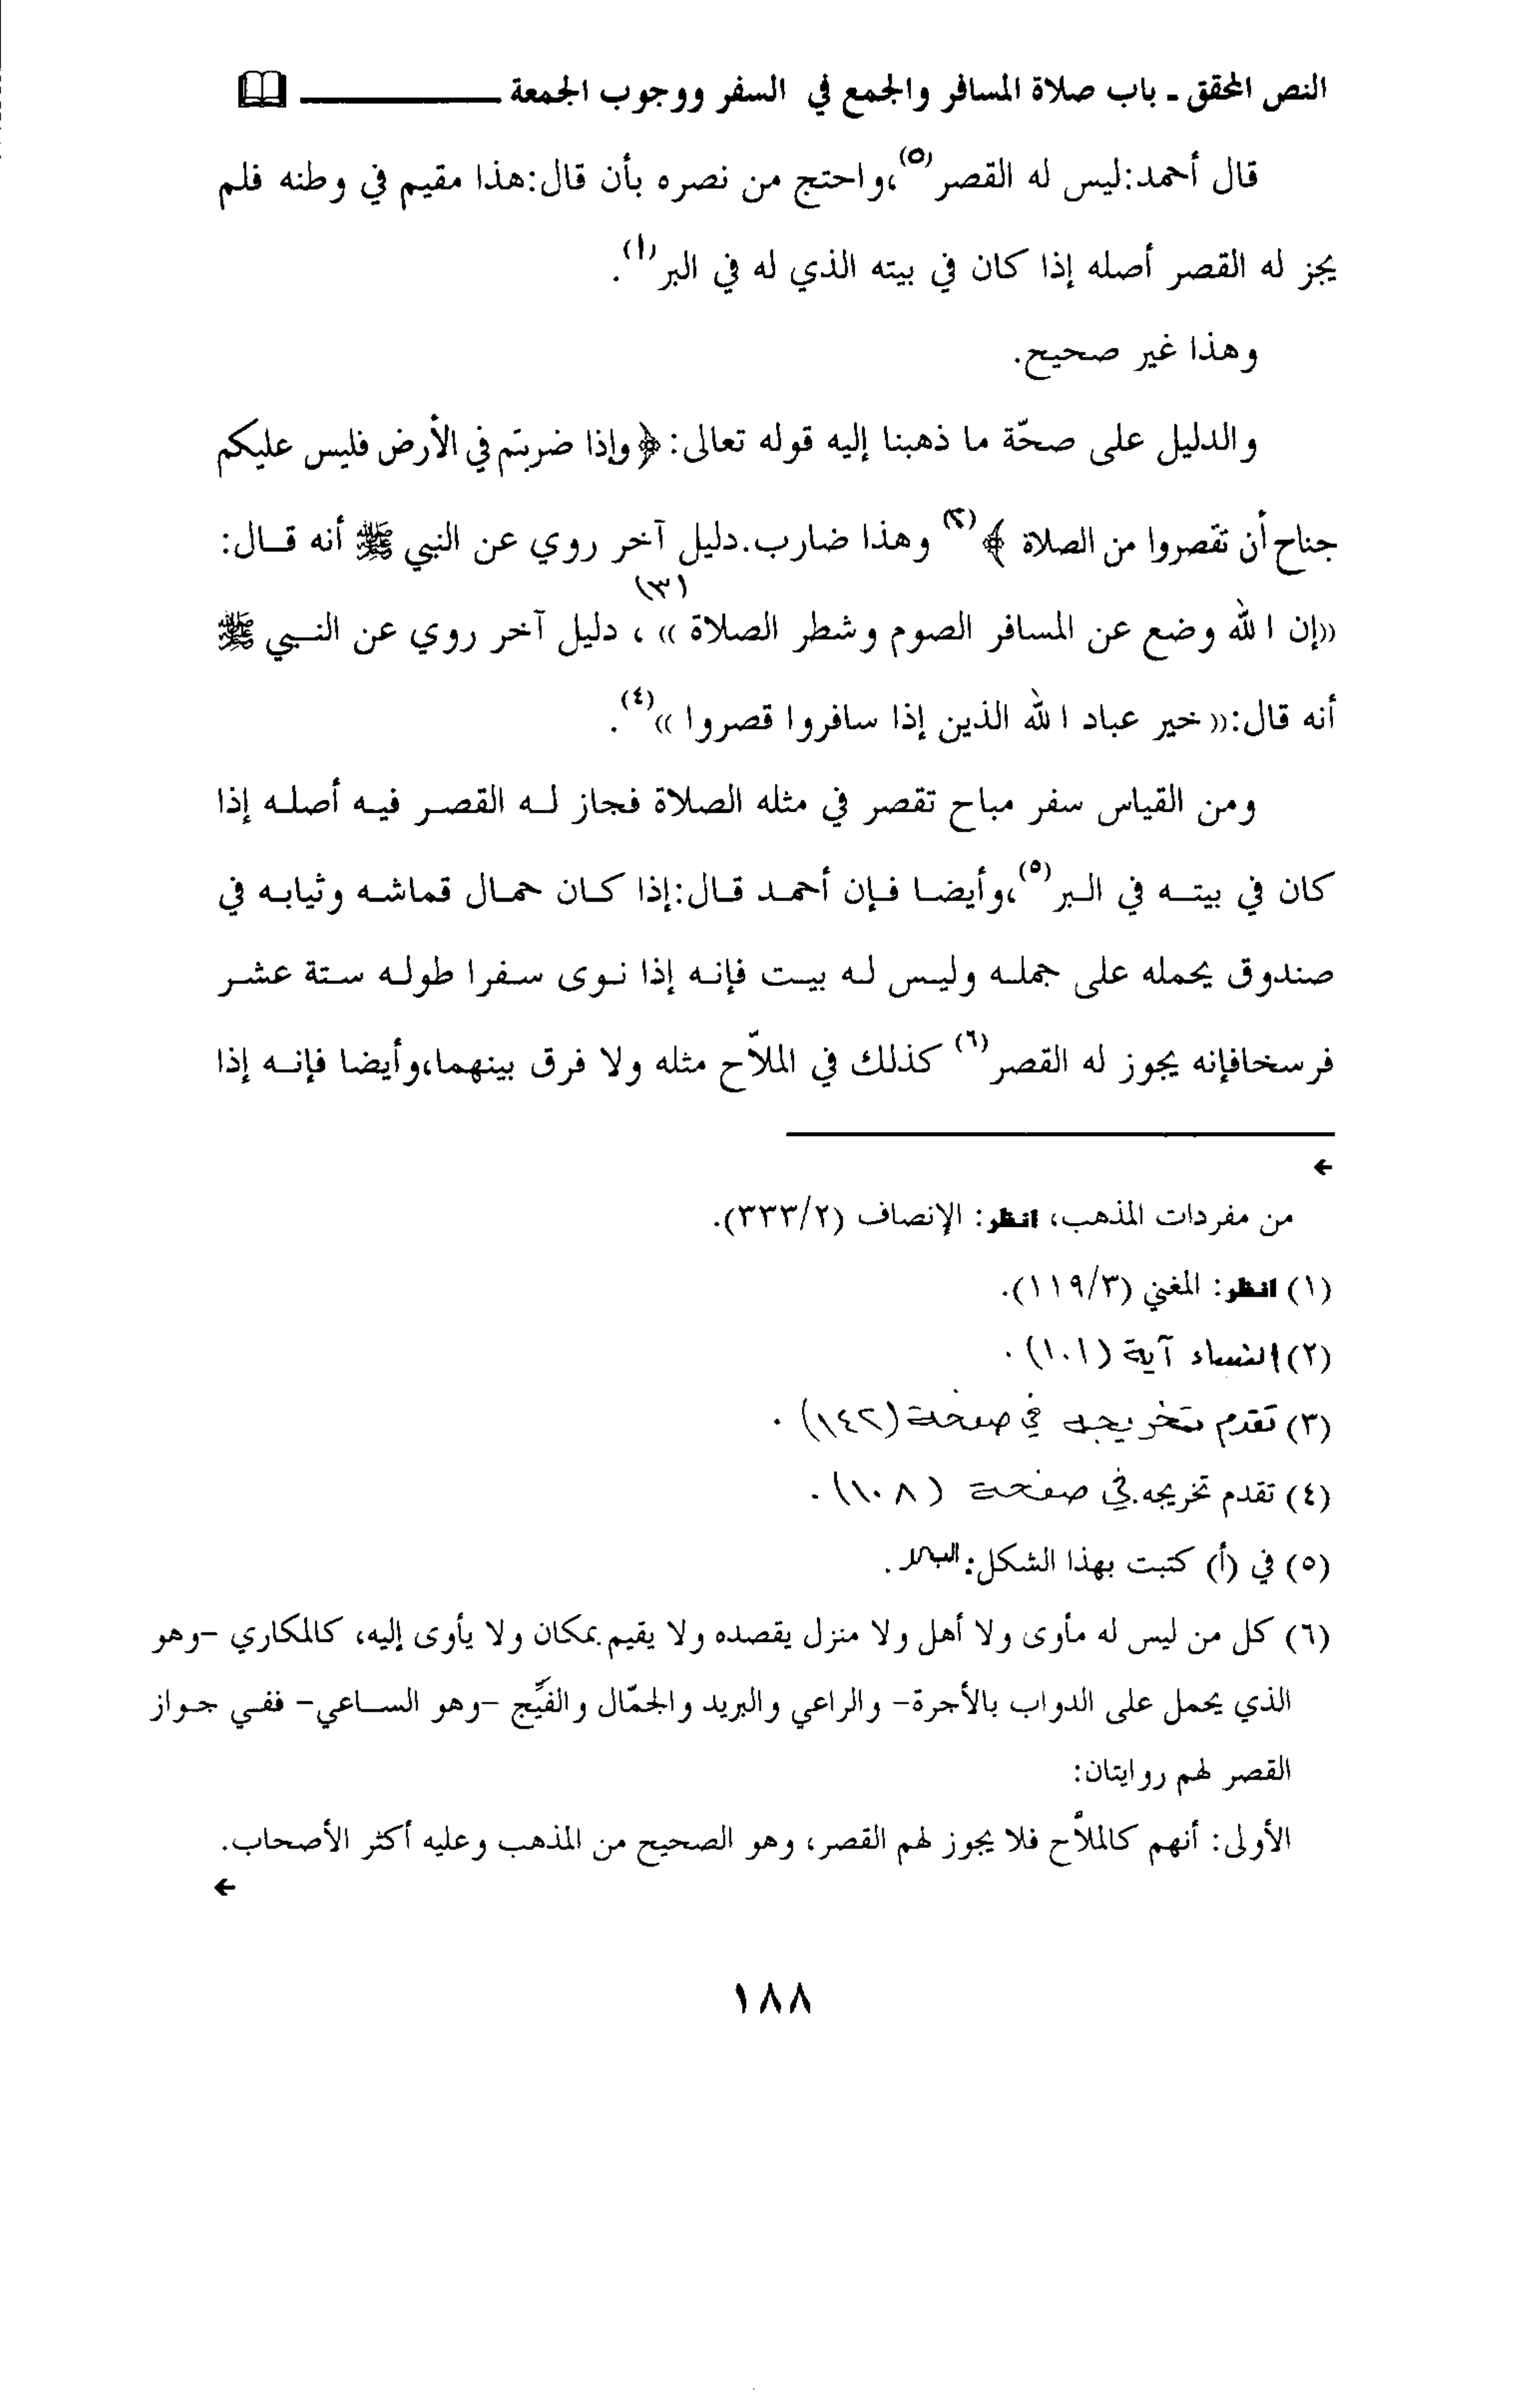 النص المحقق ـ باب صلاة المسافر والجمع في السفر ووجوب الجمعة
قال أحمد:ليس له القصر(٥)،واحتج من نصره بأن قال:هذا مقيم في وطنه فلم
يجز له القصر أصله إذا كان في بيته الذي له في البر(١).
وهذا غير صحيح.
والدليل على صحّة ما ذهبنا إليه قوله تعالى:﴿وإذا ضربتم في الأرض فليس عليكم
جناح أن تقصروا من الصلاة ﴾(٢) وهذا ضارب.دليل آخر روي عن النبي ﷺ أنه قـال:
((إن الله وضع عن المسافر الصوم وشطر الصلاة ))(٣)، دليل آخر روي عن النـبي ﷺ
أنه قال:(( خير عباد الله الذين إذا سافروا قصروا ))(٤).
ومن القياس سفر مباح تقصر في مثله الصلاة فجاز لـه القصـر فيـه أصلـه إذا
كان في بيتـه في الـبر(٥)،وأيضـا فـإن أحمـد قـال:إذا كـان حمـال قماشـه وثيابـه في
صندوق يحمله على جملـه وليـس لـه بيـت فإنـه إذا نـوى سـفرا طولـه سـتة عشـر
فرسخافإنه يجوز له القصر(٦) كذلك في الملاّح مثله ولا فرق بينهما،وأيضا فإنـه إذا
←
من مفردات المذهب، انظر: الإنصاف (٣٣٣/٢).
(١) انظر: المغني (١١٩/٣).
(٢) النساء آية (١٠١) .
(٣) تقدم تخريجه في صفحة (١٤٢) .
(٤) تقدم تخريجه.في صفحة (١٠٨) .
(٥) في (أ) كتبت بهذا الشكل: .
(٦) كل من ليس له مأوى ولا أهل ولا منزل يقصده ولا يقيم بمكان ولا يأوى إليه، كالمكاري -وهو
الذي يحمل على الدواب بالأجرة- والراعي والبريد والجمّال والفَيِّج -وهو السـاعي- ففـي جـواز
القصر لهم روايتان:
الأولى: أنهم كالملاَّح فلا يجوز لهم القصر، وهو الصحيح من المذهب وعليه أكثر الأصحاب.
←
١٨٨